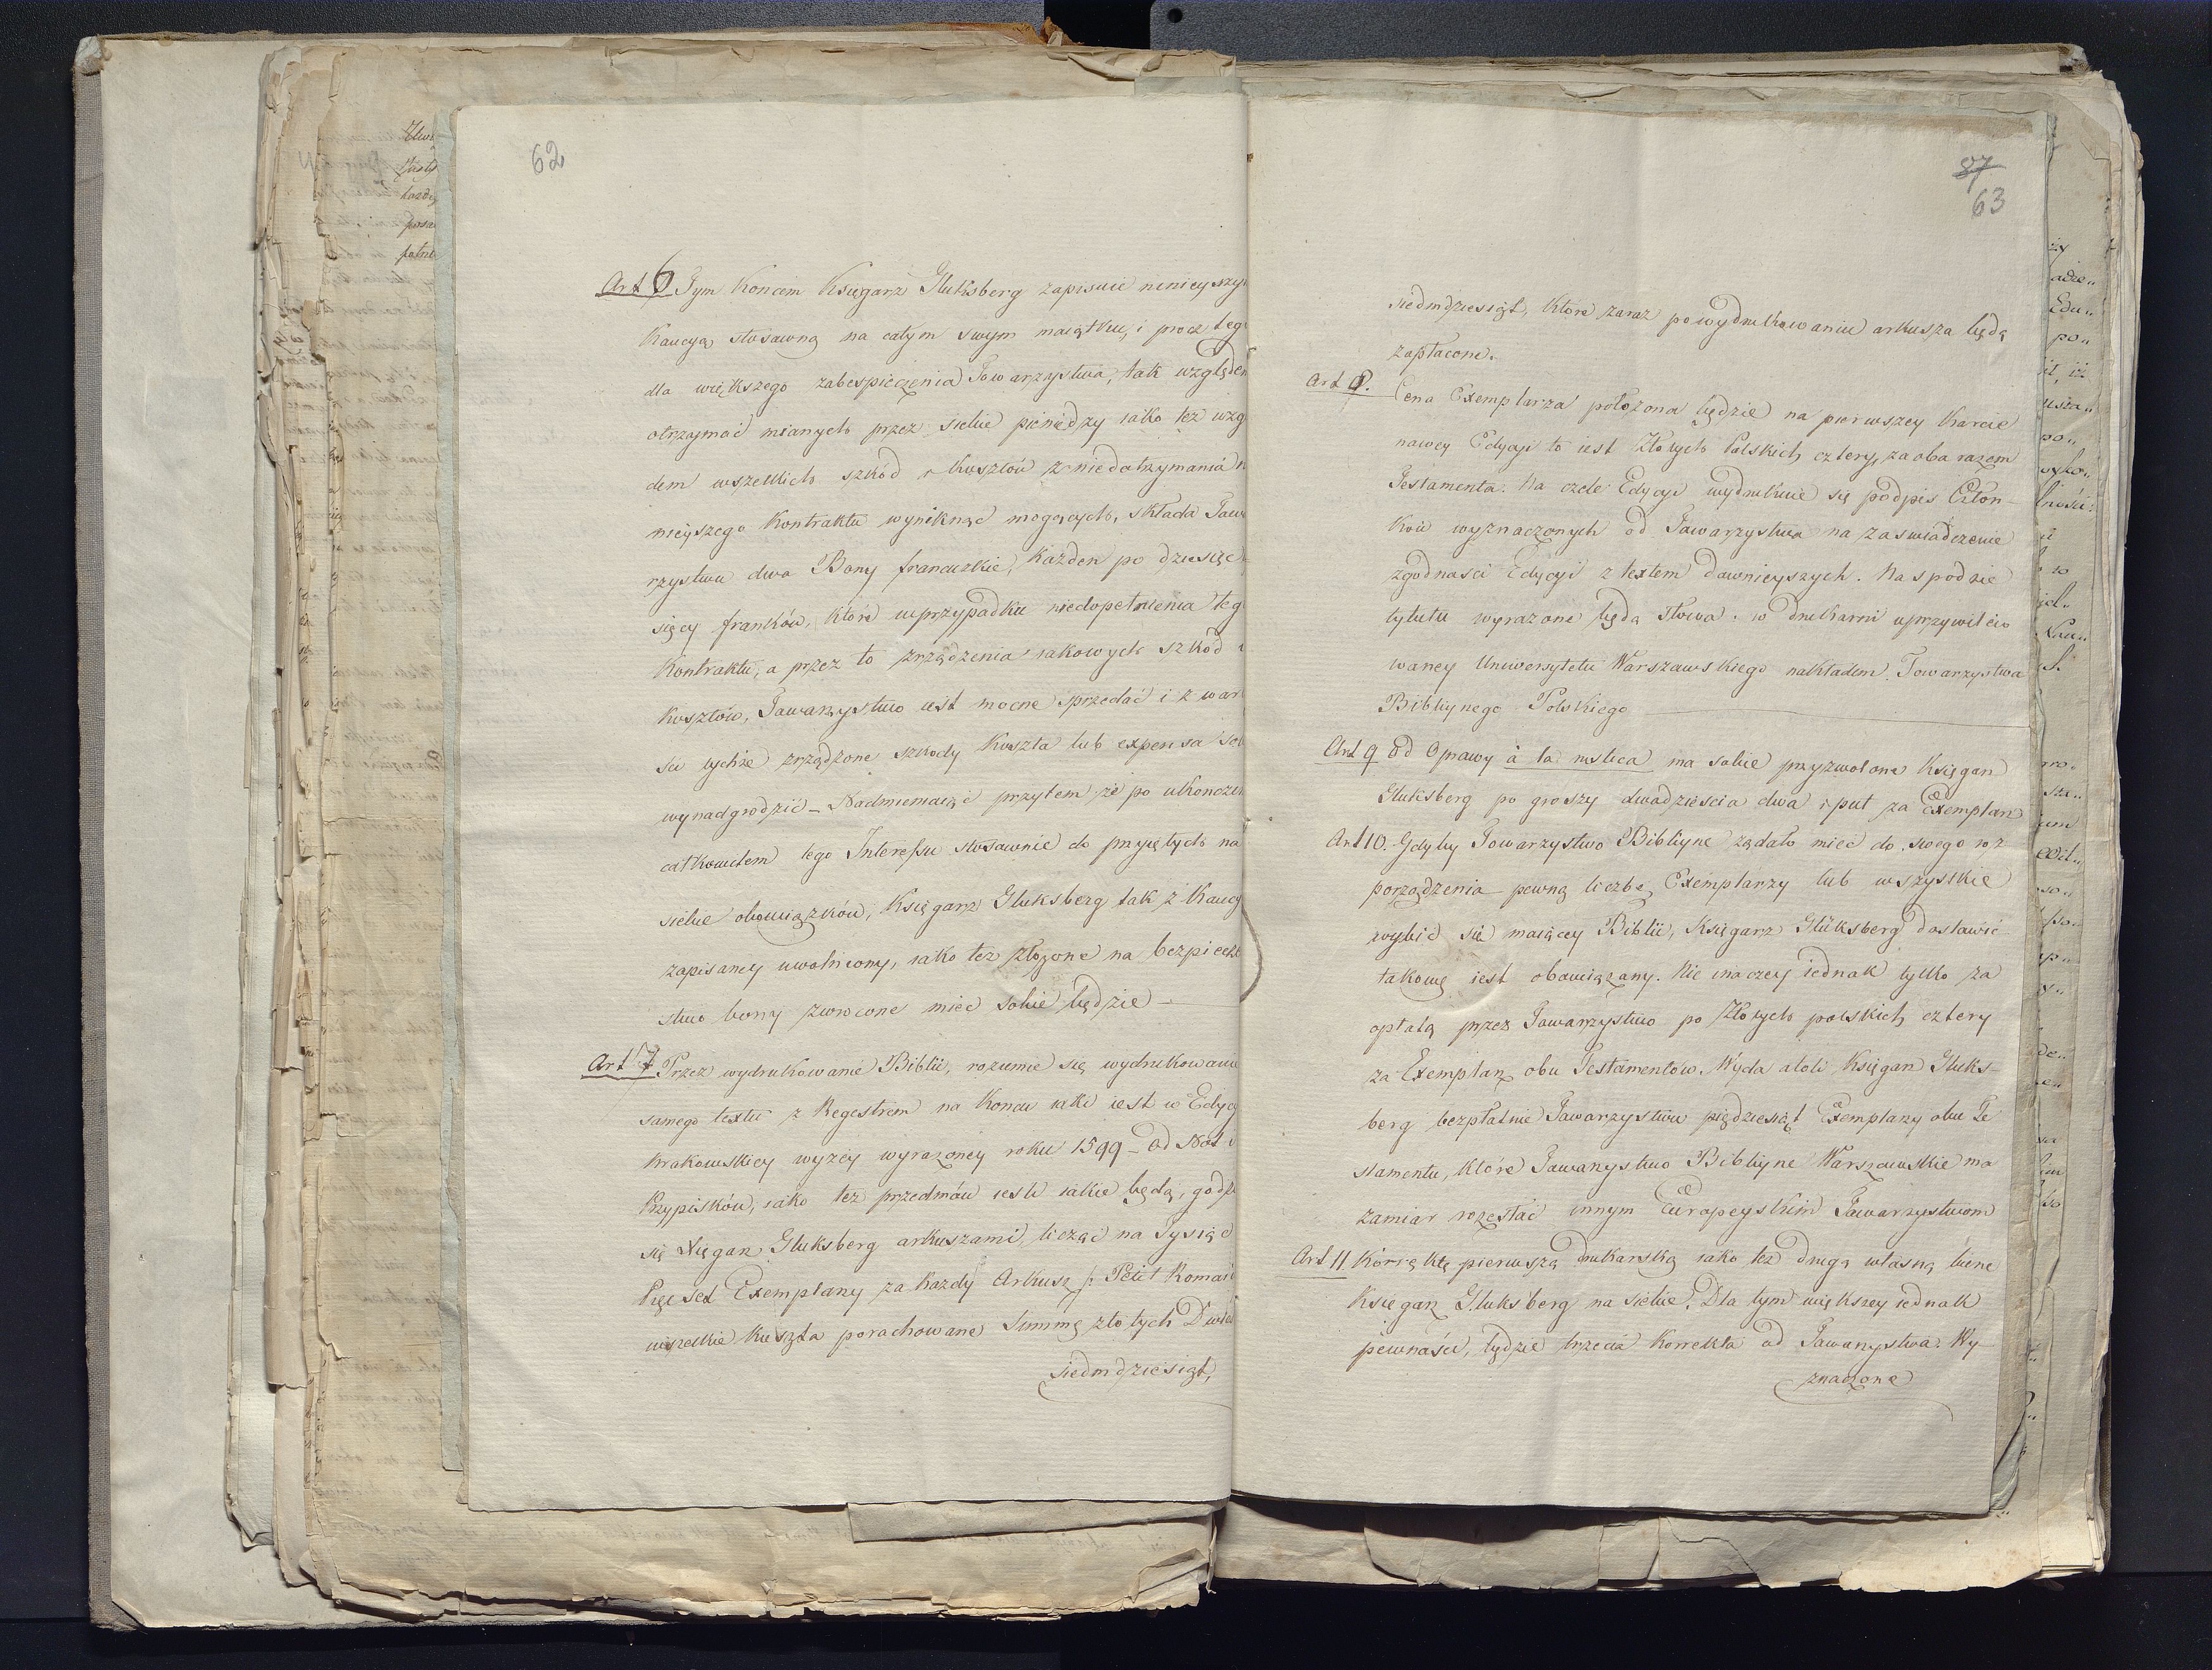 62
Art 6 Tym Koncem Księgarz Gluksberg zapisuie ninieyszy
Kaucyą stosowną na całym swym maiątku, i procz teg
dla większego zabespieczenia Towarzystwa, tak względem
otrzymać mianych przez siebie pieniędzy iako też wzg
dem wszelkich szkód i Kosztów z niedotrzymania n
nieyszego Kontraktu wyniknąć mogących, składa Towa
rzystwu dwa Bony francuzkie, każden po dziesięć
sięcy franków, które w przypadku niedopełnienia teg
Kontraktu, a przez to zrządzenia iakowych szkód i
Kosztów, Towarzystwo iest mocne sprzedać i z war
sci tychże zrządzone szkody Koszta lub expensa so
wynadgrodzić – Nadmieniaiąc przytem że po ukończen
całkowitem tego Interessu stosownie do przyiętych na
siebie obowiązków, Księgarz Gluksberg tak z Kaucy
zapisaney uwolniony, iako też złożone na bezpiecze
stwo bony zwrocone mieć sobie będzie –
Art 7 Przez wydrukowanie Biblii, rozumie się wydrukowanie
samego textu z Regestrem na Końcu iaki iest w Edyc
Krakowskiey wyżey wyrażoney roku 1599 – Od Not i
Przypisków, iako też przedmów iesli iakie będą, godzi
się Xięgarz Gluksberg arkuszami, licząc na Tysiąc
Pięcset Exemplarzy za każdy Arkusz /: Petit Romain
wszelkie Koszta porachowane Summę złotych Dwie
siedmdziesiąt,
87
63
siedmdziesiąt, które zaraz po wydrukowaniu arkusza będą
zapłacone.
Art 8. Cena Exemplarza położona będzie na pierwszey Karcie
nowey Edycyi to iest Złotych Polskich cztery, za oba razem
Testamenta. Na czele Edycyi wydrukuie się podpis Człon-
ków wyznaczonych od Towarzystwa na zaswiadczenie
zgodności Edycyi z textem dawnieyszych. Na spodzie
tytułu wyrażone będą słowa: w drukarni uprzywileio
waney Uniwersytetu Warszawskiego nakładem Towarzystwa
Bibliynego Polskiego
Art 9 Od Oprawy à la rustica ma sobie przyzwolone Księgarz
Gluksberg po groszy dwadzieścia dwa i puł za Exemplarz
Art 10. Gdyby Towarzystwo Bibliyne żądało mieć do swego roz
porządzenia pewną liczbę Exemplarzy lub wszystkie
wybić się maiącey Biblii, Księgarz Glüksberg dostawić
takowę iest obowiązany. Nie inaczey iednak tylko za
opłatą przez Towarzystwo po Złotych polskich cztery
za Exemplarz obu Testamentów. Wyda atoli Księgarz Gluks-
berg bezpłatnie Towarzystwu pięćdziesiąt Exemplarzy obu Te
stamentu, które Towarzystwo Bibliyne Warszawskie ma
zamiar rozesłać innym Europeyskim Towarzystwom
Art 11 Korrektę pierwszą drukarską iako też drugą własną bierze
Księgarz Gluksberg na siebie. Dla tym większey iednak
pewności, będzie trzecia Korrekta od Towarzystwa Wy-
znaczone